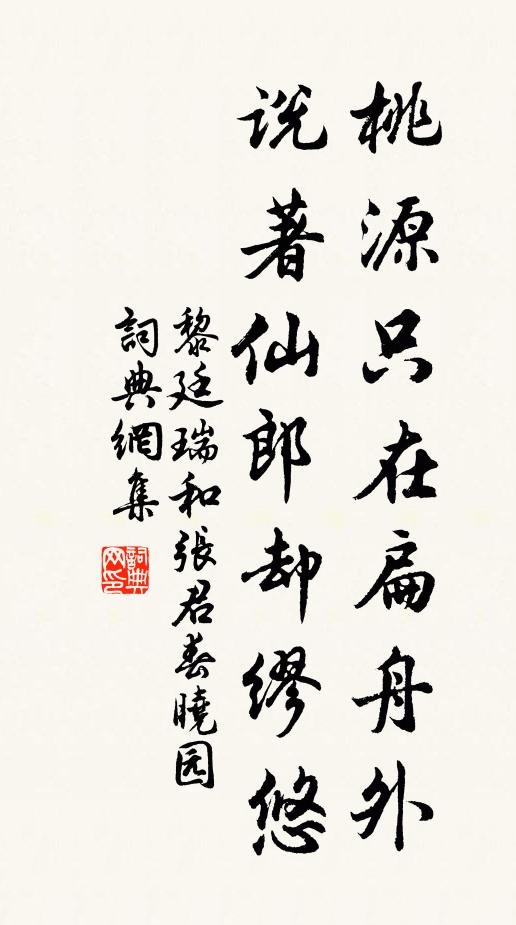 桃源只在扁舟外
说著仙郎却缪悠
黎廷瑞和張君春曉园
詞典網集
詞典网印